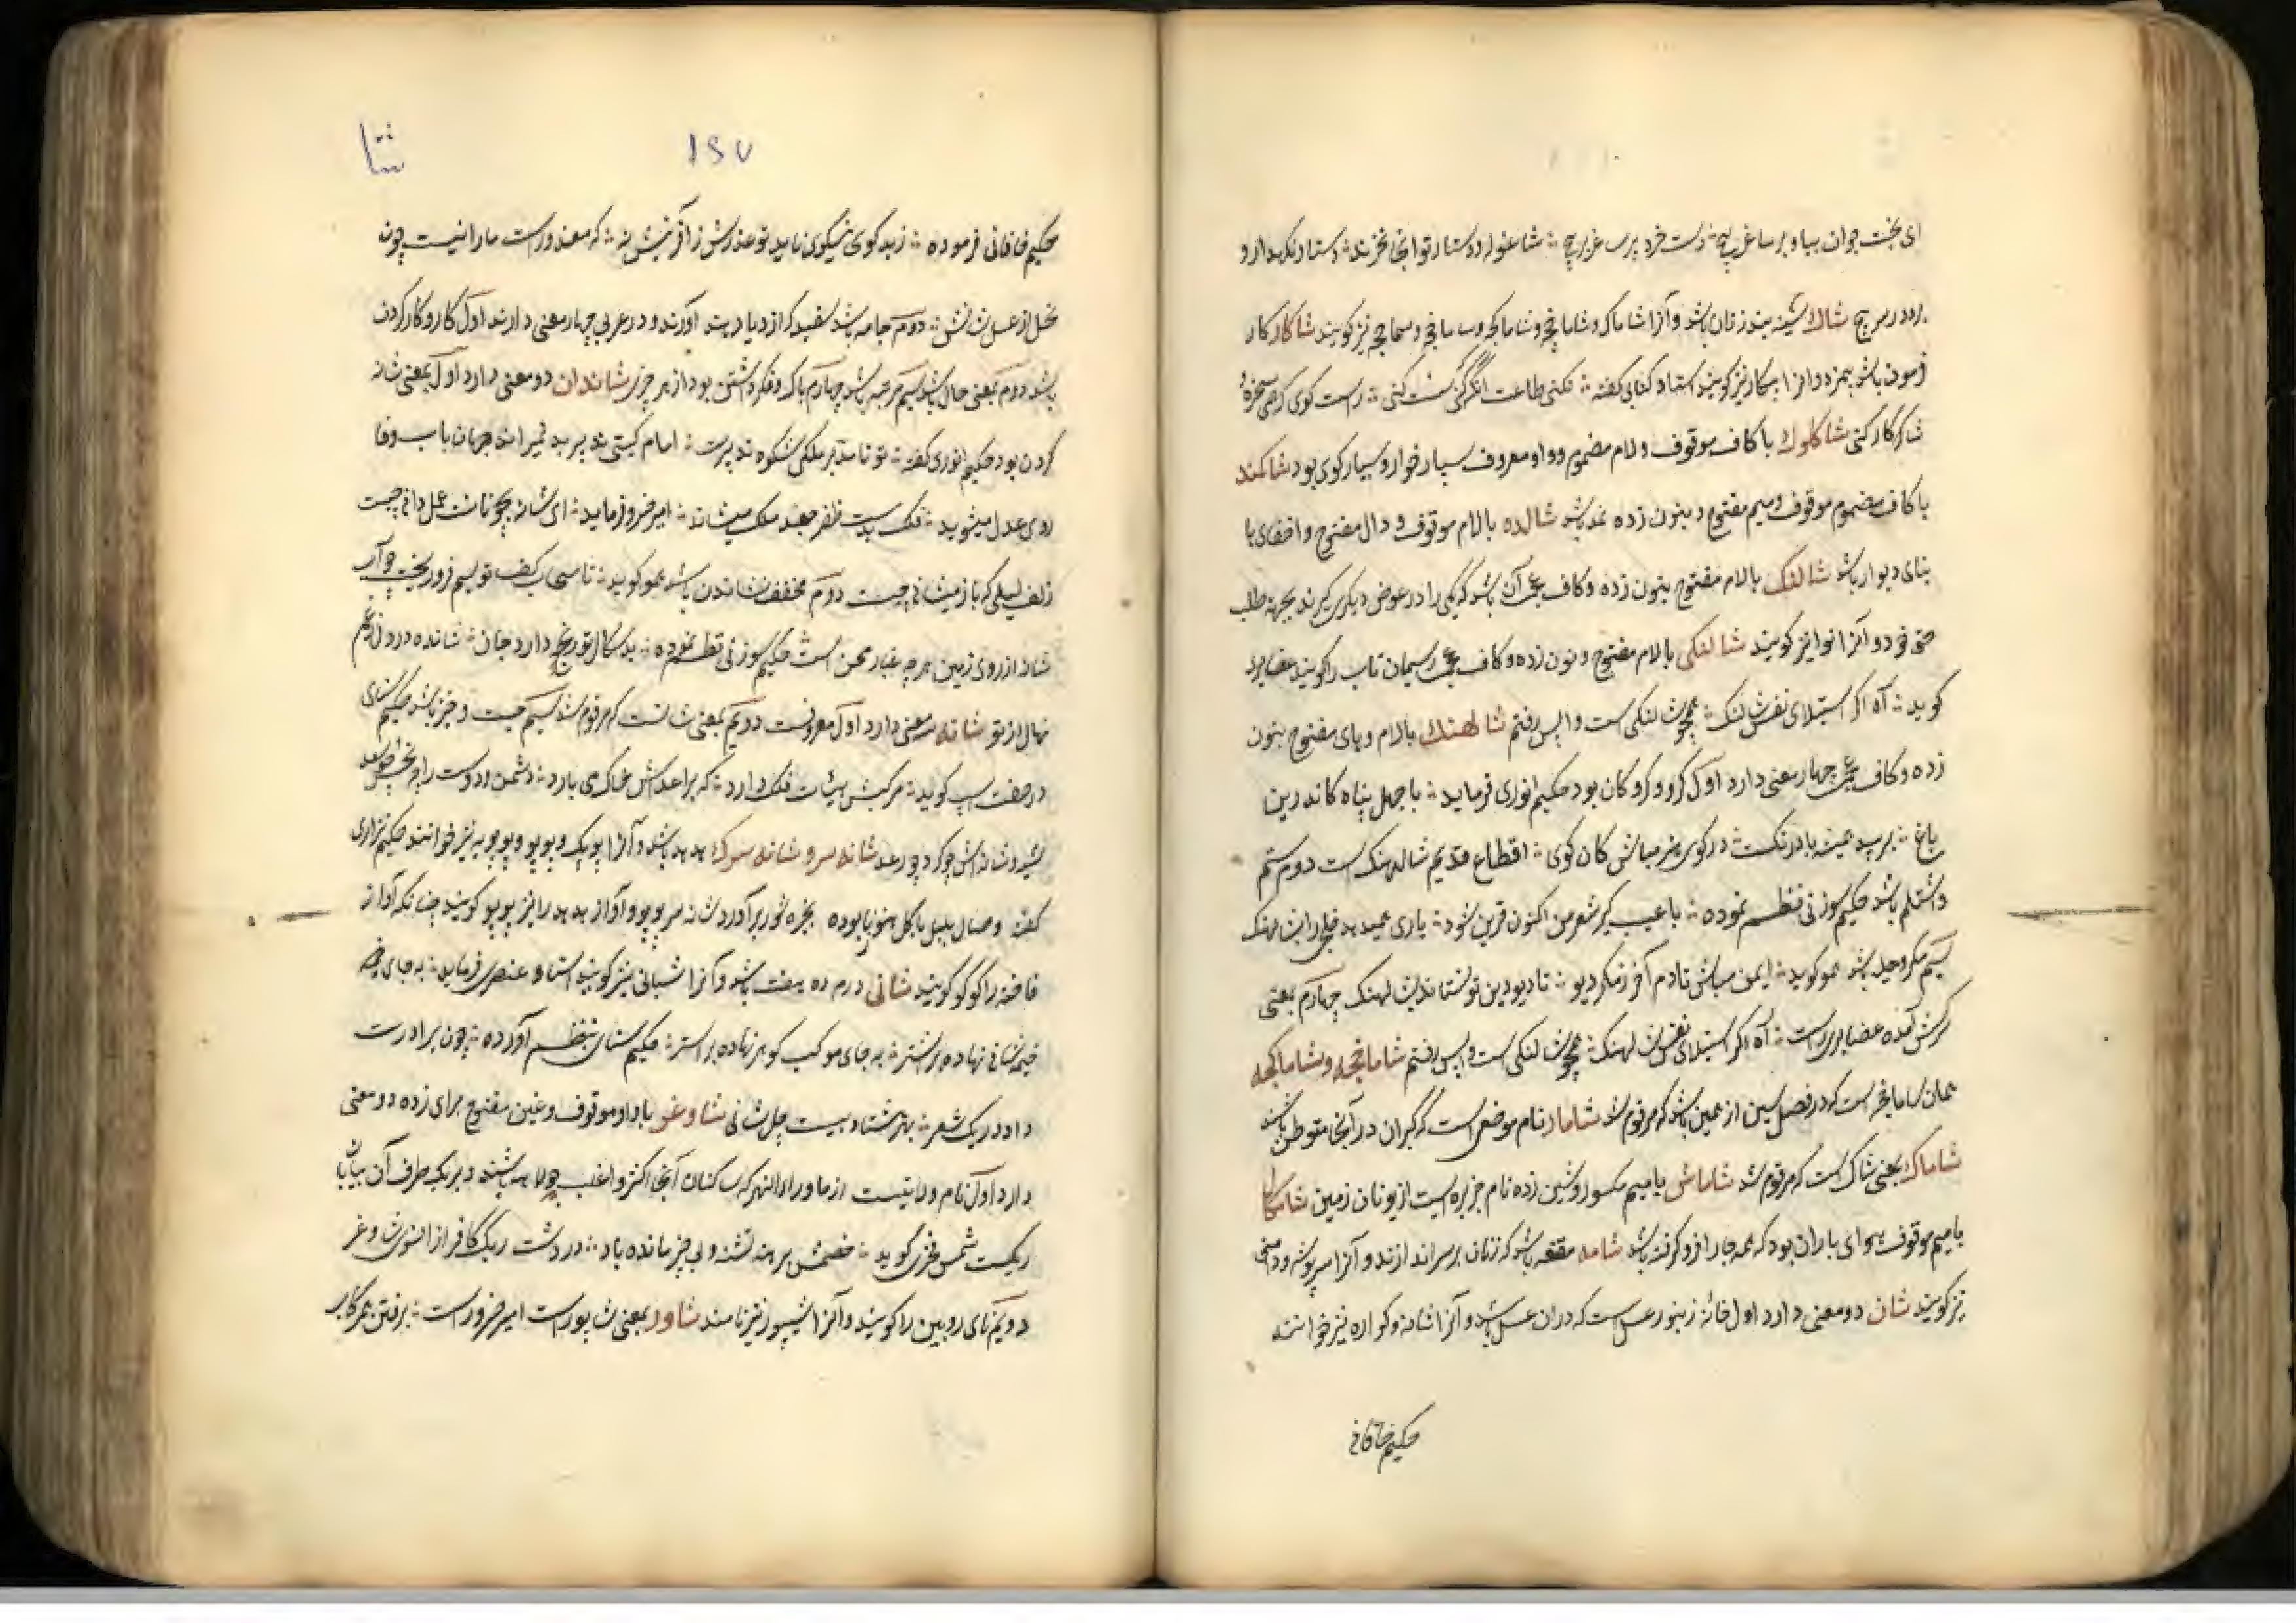 ای بخت جوان بیا و بر ساغر پیچ دست خرد پرسا غریر پیچ شاغوله و دستار تو اینجا نخرند دستار نگهدار و
برو در سر پیچ شاك سینه بند زنان باشد و آنرا شاماک و شاماخچه و شاماکچه و ساماخچه و سماچه نیز گویند شاكار کار
فرمودن باشد بیمزد و انرا بیکار نیز گویند استاد کسائی گفته نکنی طاعت انگه که کنی سست کنی راست گوی که همی سخره و
شاکار کنی شاكلوك با کاف موقوف و لام مضموم و واو معروف بسیار خوار و بسیار گوی بود شاكمند
با کاف مضموم موقوف و میم مفتوح و بنون زده نمد باشد شالده بالام موقوف و دال مفتوح و اخفای ها
بنای دیوار باشد شالنك بالام مفتوح بنون زده و کاف عجمی آن باشد که یکی را در عوض دیگری گیرند بجهته طلب
حق خود و آنرا نوا نیز گویند شالنكی بالام مفتوح و نون زده و کاف عجمی ریسمان تاب را گویند عضایری
گوید آه اگر استیلای نفس لنک همچو شالنکی است واپس رفتنم شالهنك بالام و های مفتوح بنون
زده و کاف عجمی چهار معنی دارد اول گرو و گروگان بود حکیم انوری فرماید با جهل پناه کاندرین
باغ بر بید همیشه بادرنگست در کوی هنر مباش کان کوی اقطاع قدیم شالهنک است دوم ستم
و اشتلم باشد حکیم سوزنی نظم نموده با عیب گیر شعر من اکنون قرین شود
سیم مکر و حیله باشد عمو گوید ایمن مباش تا دم آخر ز مکر دیو تا دیو دین تو نستاند بشالهنک چهارم بمعنی
سرکش آمده عضایری راست آه اگر استیلای نفس شالهنک همچو شالنکی است واپس رفتنم شاماخچه و شاماكچه
همان ساماخچه است که در فصل سین از همین باب مرقوم شد شامار نام موضعی است که گبران در آنجا متوطن باشند
شاماك بمعنی شاک است که مرقوم شد شاماش بامیم مکسور و شین زده نام جزیره ایست از یونان زمین شامكا
بامیم موقوف هوای باران بود که همه جا را فرو گرفته باشد شامه مقنعه باشد که زنان بر سر اندازند و آنرا سرپوشه و دامنی
نیز گویند شان دو معنی دارد اول خانه زنبور عسل است که دران عسل باشد و آنرا شانه و کواره نیز خوانند
حکیم خاقانی
شا
۱۵۷
حکیم خاقانی فرموده ز بد گوی نیکوی ناید تو عذرش ز آفرینش نه که معذور است مارا نیست چون
نحل از عسل شانش دوم جامه باشد سفید که از دیار هند آورند و در عربی چهار معنی دارند اول کار و کار کردن
باشد دوم بمعنی حال باشد سیم مرتبه باشد چهارم باک و فکر داشتن بود از هر چیز شاندان دو معنی دارد اول بمعنی شانه
کردن بود حکیم انوری گفته
روی عدل میشوید فلک بدست ظفر جعد ملک میشاند امیر خسرو فرماید ای شانه چگونات عمل دانی چیست
زلف لیلی که باز میشانی چیست دوم مخفف نشاندن باشد عمو گوید تا سحاب کف تو بسیم فرو ریخت چو آب
شاند از روی زمین هر چه غبار محن است حکیم سوزنی نظم نموده بد سگال تو رنج دارد جان شانده در دل ز غم
نهال از تو شانه سه معنی دارد اول معروفست دویم بمعنی شانست که مرقوم شد سیم جست و خیز باشد حکیم سنائی
در صفت اسپ گوید مرکبش هیأت فلک دارد که بر اعداش خاک می بارد دشمن و دوست را چه نحس و چه سعد
شیهه و شانه اش چو گرد و چو رعد شانه سر و شانه سرك هدهد باشد و آنرا پوپک و پوپو و پوپه نیز خوانند حکیم نزاری
گفته وصال بلبل با گل هنوز نابوده بخیره شور برآورد شانه سر پوپو و آواز هدهد را نیز پوپو گویند چنانکه آواز
فاخته را کوکو گویند شانی درم ده هفت باشد و آنرا شیانی نیز گویند استاد عنصری فرماید به جای خیمه
خیمه شانی نهاده بر اشتر به جای موکب گوهر نهاده بر استر حکیم سنائی بنظم آورده چون برادرت
داد در یک شعر بهر هشتاد بیست چل شانی شاوغر باواو موقوف و غین مفتوح برای زده دو معنی
دارد اول نام ولایتیست از ماوراءالنهر که ساکنان آنجا اکثر و اغلب جولاهه باشند و بر یک طرف آن بیابان
ریگست شمس فخری گوید خصمش برهنه تشنه و بی چیز مانده باد در دشت ریگ کافر از انسوی شاوغر
دویم نای رویین را گویند و آنرا شیپور نیز نامند شاور بمعنی شاپور است امیر خسرو راست برفتن همرکاب